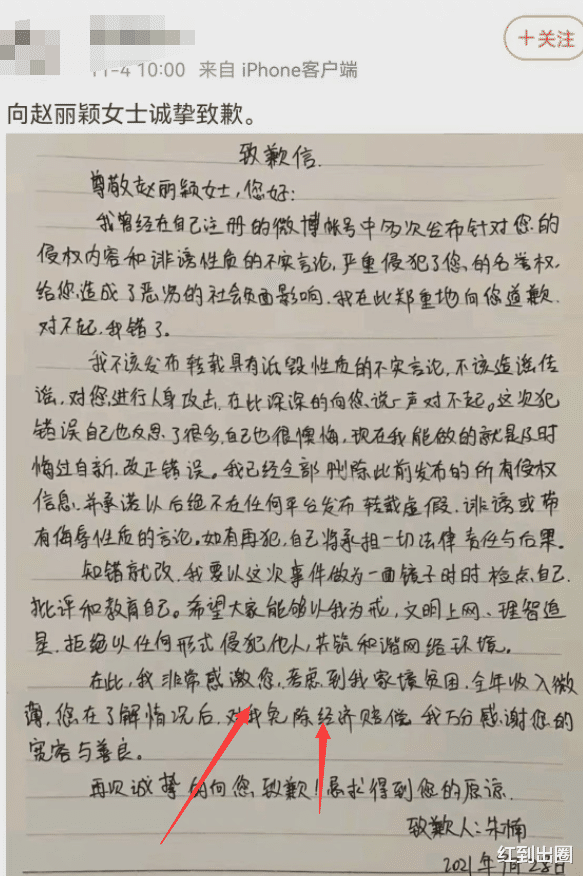 +关注
11-4 10:00 来自 iPhone客户端
向赵丽颖女士诚挚致歉。
致歉信.
尊敬赵丽颖女士,您好:
我曾经在自己注册的微博帐号中多次发布针对您的
侵权内容和诽谤性质的不实言论,严重侵犯了您的名誉权
给您造成了恶劣的社会负面影响.我在此郑重地向您道歉.
对不起,我错了.
我不该发布转载具有诋毁性质的不实言论,不该造谣传
谣,对您进行人身攻击,在此深深的向您说一声对不起。这次犯
错误自己也反思了很多,自己也很懊悔,现在我能做的就是及时
悔过自新.改正错误。我已经全部删除此前发布的所有侵权
信息.并承诺以后绝不在任何平台发布转载虚假.诽谤或带
有侮辱性质的言论。如有再犯,自己将承担一切法律责任与后果。
知错就改.我要以这次事件做为一面镜子时时检点自己.
批评和教育自己。希望大家能够以我为戒,文明上网、理智追
星.拒绝以任何形式侵犯他人,共筑和谐网络环境。
在此,我非常感激您,考虑到我家境贫困.全年收入微
薄,您在了解情况后.对我免除经济赔偿.我万分感谢您的
宽容与善良。
再次诚挚的向您致歉!恳求得到您的原谅.
致歉人:朱楠
2021年9月28日
红到出圈